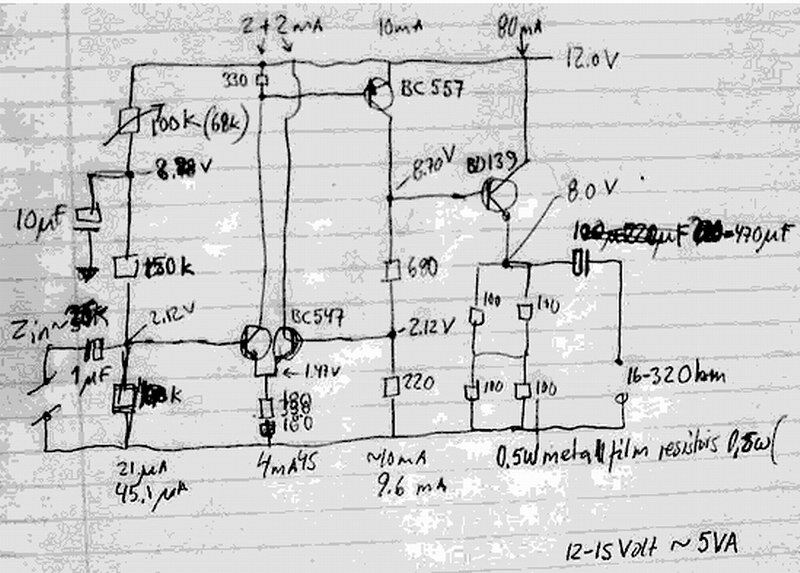 2 + 2 mA 10mA 80mA
330 BC 557 12.0V
100k (68k)
8.70V BD139
8.0V
10µF µF =470µF
680
100 100
Zin~ k 2.12V BC547 2.12V
1.47V
1µF 220 100 100 16-320hm
180
21µA 4mA45 ~10mA 0.5W metall film resistors 0,5W(
45.1µA 9.6 mA
12-15 Volt ~ 5VA